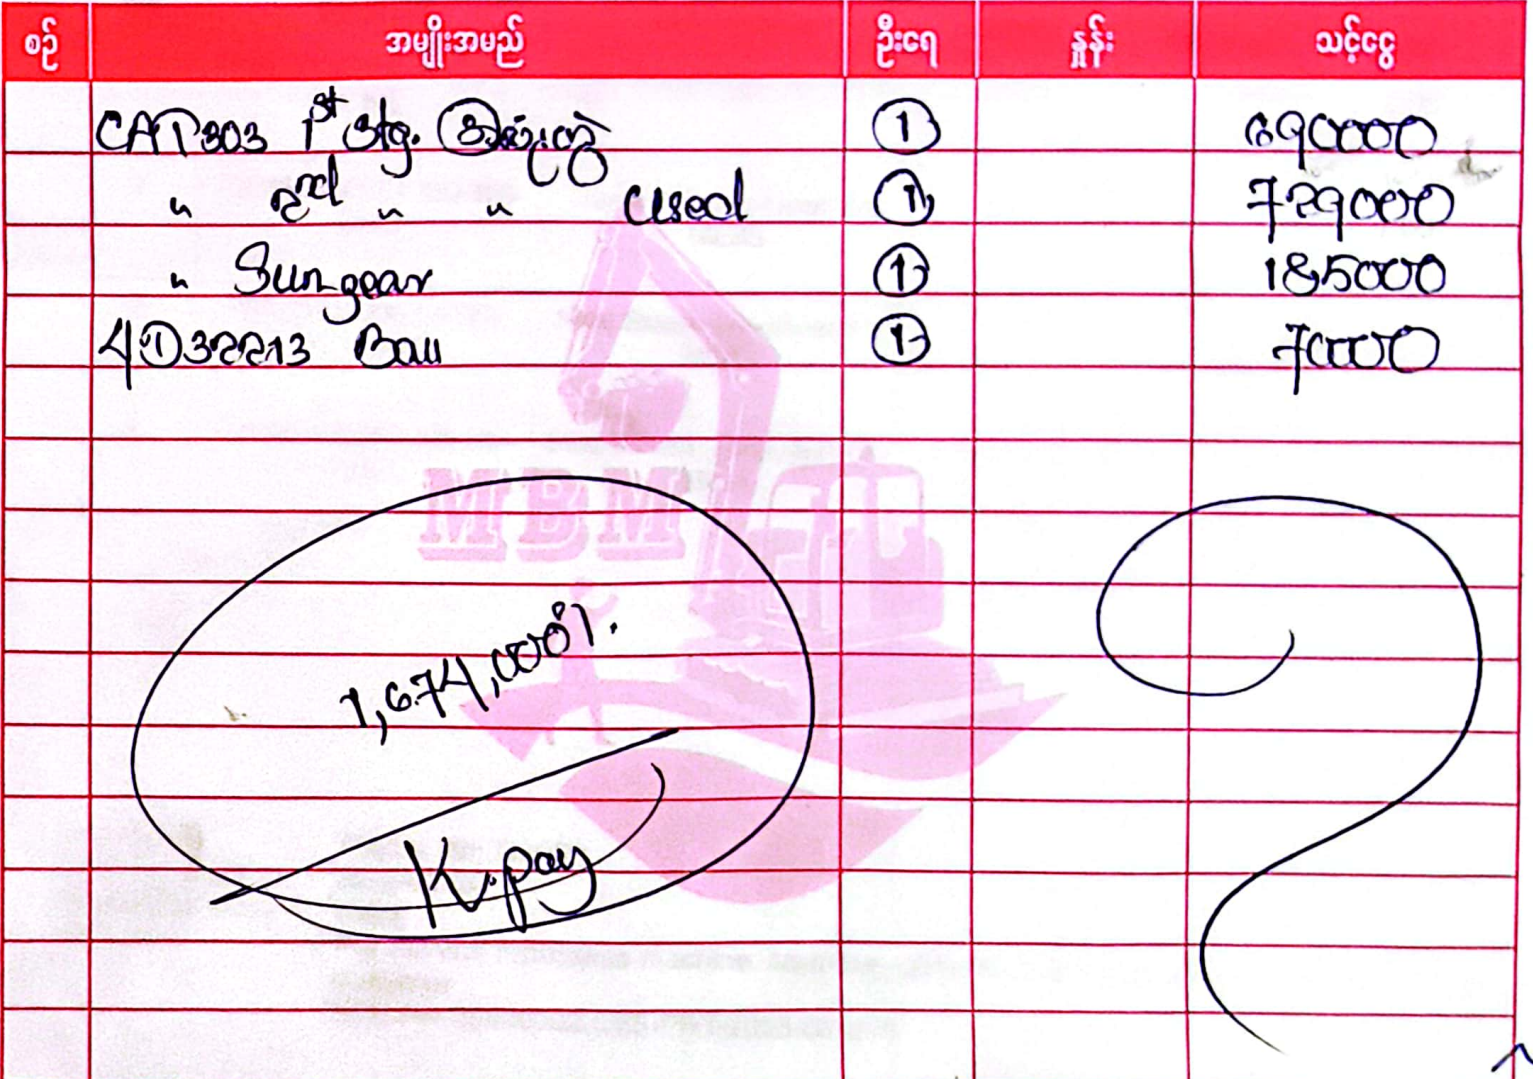 စဉ် အမျိုးအမည် ဦးရေ နှုန်း သင့်ငွေ
CAT303 1st stg. အလုံးတွဲ 1 690000
" 2nd " " used 1 729000
" Sun gear 1 185000
4D32213 Ball 1 70000
MBM
1,674,000/.
K.pay